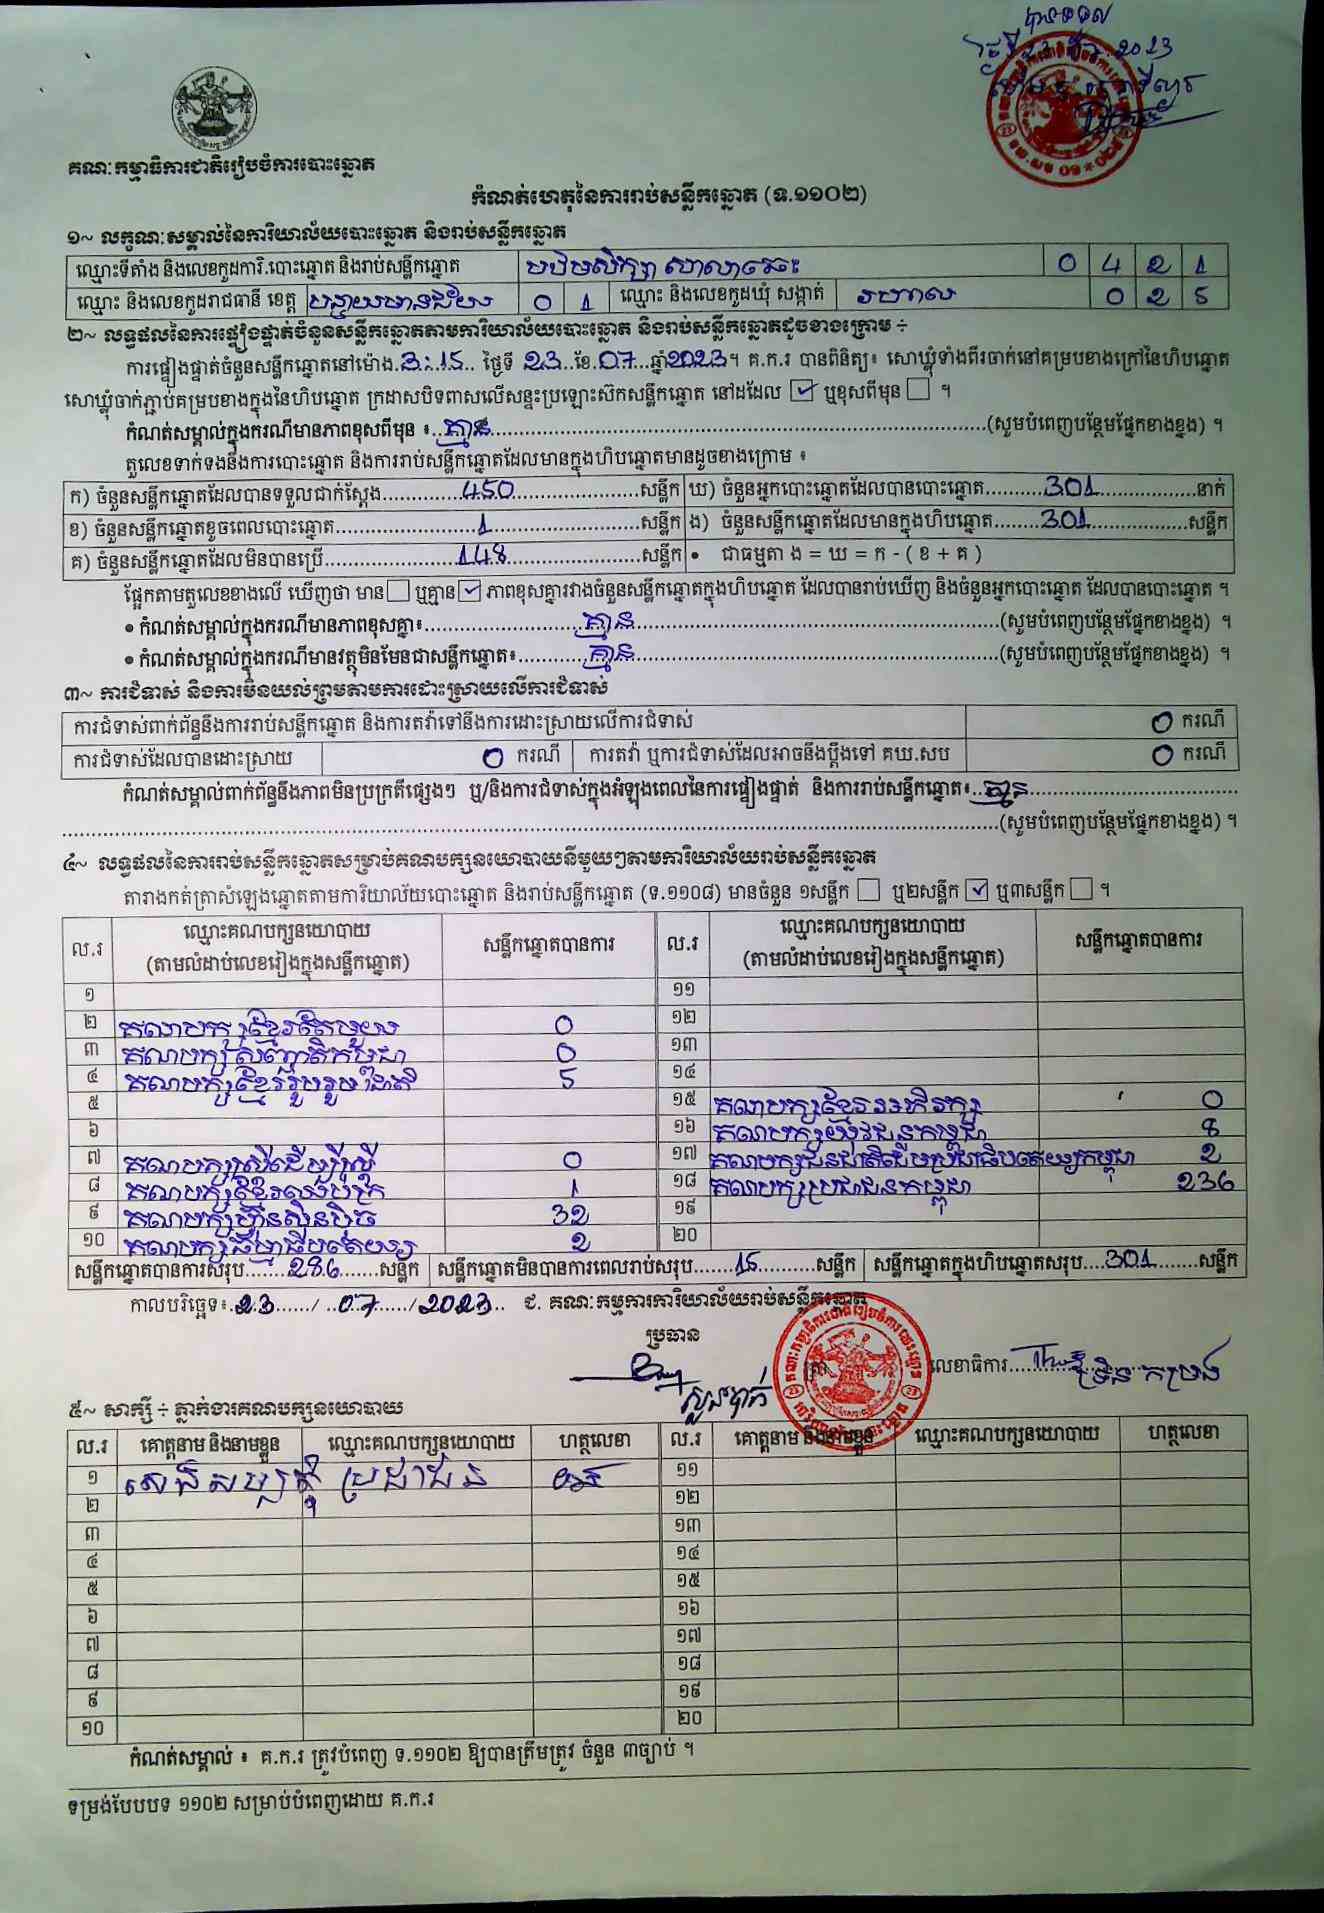 បានទទួល
គណៈកម្មាធិការជាតិរៀបចំការបោះឆ្នោត
កំណត់ហេតុនៃការរាប់សន្លឹកឆ្នោត (ទ.១១០២)
១~ លក្ខណៈសម្គាល់នៃការិយាល័យបោះឆ្នោត និងរាប់សន្លឹកឆ្នោត
ឈ្មោះទីតាំង និងលេខកូដការិ.បោះឆ្នោត និងរាប់សន្លឹកឆ្នោត បឋមសិក្សា សាលា 0 4 2 1
ឈ្មោះ និងលេខកូដរាជធានី ខេត្ត បន្ទាយមានជ័យ 0 1 ឈ្មោះ និងលេខកូដឃុំ សង្កាត់ រហាល 0 2 5
២~ លទ្ធផលនៃការផ្ទៀងផ្ទាត់ចំនួនសន្លឹកឆ្នោតតាមការិយាល័យបោះឆ្នោត និងរាប់សន្លឹកឆ្នោតដូចខាងក្រោម ÷
ការផ្ទៀងផ្ទាត់ចំនួនសន្លឹកឆ្នោតនៅម៉ោង 3:15 ថ្ងៃទី 23 ខែ 07 ឆ្នាំ 2023 ។ គ.ក.រ បានពិនិត្យ៖ សោឃ្លុំទាំងពីរចាក់នៅគម្របខាងក្រៅនៃហិបឆ្នោត
សោឃ្លុំចាក់ភ្ជាប់គម្របខាងក្នុងនៃហិបឆ្នោត ក្រដាសបិទពាសលើសន្ទះប្រឡោះស៊កសន្លឹកឆ្នោត នៅដដែល ☑ ឬខុសពីមុន ☐ ។
កំណត់សម្គាល់ក្នុងករណីមានភាពខុសពីមុន ៖ គ្មាន (សូមបំពេញបន្ថែមផ្នែកខាងខ្នង) ។
តួលេខទាក់ទងនឹងការបោះឆ្នោត និងការរាប់សន្លឹកឆ្នោតដែលមានក្នុងហិបឆ្នោតមានដូចខាងក្រោម ៖
ក) ចំនួនសន្លឹកឆ្នោតដែលបានទទួលជាក់ស្តែង 450 សន្លឹក ឃ) ចំនួនអ្នកបោះឆ្នោតដែលបានបោះឆ្នោត 301 នាក់
ខ) ចំនួនសន្លឹកឆ្នោតខូចពេលបោះឆ្នោត 1 សន្លឹក ង) ចំនួនសន្លឹកឆ្នោតដែលមានក្នុងហិបឆ្នោត 301 សន្លឹក
គ) ចំនួនសន្លឹកឆ្នោតដែលមិនបានប្រើ 148 សន្លឹក • ជាធម្មតា ង = ឃ = ក - ( ខ + គ )
ផ្អែកតាមតួលេខខាងលើ ឃើញថា មាន ☐ ឬគ្មាន ☑ ភាពខុសគ្នារវាងចំនួនសន្លឹកឆ្នោតក្នុងហិបឆ្នោត ដែលបានរាប់ឃើញ និងចំនួនអ្នកបោះឆ្នោត ដែលបានបោះឆ្នោត ។
• កំណត់សម្គាល់ក្នុងករណីមានភាពខុសគ្នា៖ គ្មាន (សូមបំពេញបន្ថែមផ្នែកខាងខ្នង) ។
• កំណត់សម្គាល់ក្នុងករណីមានវត្ថុមិនមែនជាសន្លឹកឆ្នោត៖ គ្មាន (សូមបំពេញបន្ថែមផ្នែកខាងខ្នង) ។
៣~ ការជំទាស់ និងការមិនយល់ព្រមតាមការដោះស្រាយលើការជំទាស់
ការជំទាស់ពាក់ព័ន្ធនឹងការរាប់សន្លឹកឆ្នោត និងការតវ៉ាទៅនឹងការដោះស្រាយលើការជំទាស់ 0 ករណី
ការជំទាស់ដែលបានដោះស្រាយ 0 ករណី ការតវ៉ា ឬការជំទាស់ដែលអាចនឹងប្តឹងទៅ គឃ.សប 0 ករណី
កំណត់សម្គាល់ពាក់ព័ន្ធនឹងភាពមិនប្រក្រតីផ្សេងៗ ឬ/និងការជំទាស់ក្នុងអំឡុងពេលនៃការផ្ទៀងផ្ទាត់ និងការរាប់សន្លឹកឆ្នោត៖ គ្មាន
(សូមបំពេញបន្ថែមផ្នែកខាងខ្នង) ។
៤~ លទ្ធផលនៃការរាប់សន្លឹកឆ្នោតសម្រាប់គណបក្សនយោបាយនីមួយៗតាមការិយាល័យរាប់សន្លឹកឆ្នោត
តារាងកត់ត្រាសំឡេងឆ្នោតតាមការិយាល័យបោះឆ្នោត និងរាប់សន្លឹកឆ្នោត (ទ.១១០៨) មានចំនួន ១សន្លឹក ☐ ឬ២សន្លឹក ☑ ឬ៣សន្លឹក ☐ ។
ល.រ ឈ្មោះគណបក្សនយោបាយ (តាមលំដាប់លេខរៀងក្នុងសន្លឹកឆ្នោត) សន្លឹកឆ្នោតបានការ ល.រ ឈ្មោះគណបក្សនយោបាយ (តាមលំដាប់លេខរៀងក្នុងសន្លឹកឆ្នោត) សន្លឹកឆ្នោតបានការ
១ ១១
២ គណបក្សខ្មែរតែមួយ 0 ១២
៣ គណបក្សសញ្ជាតិកម្ពុជា 0 ១៣
៤ គណបក្សខ្មែររួបរួមជាតិ 5 ១៤
៥ ១៥ គណបក្សខ្មែរអភិរក្ស 0
៦ ១៦ គណបក្សយុវជនកម្ពុជា 8
៧ គណបក្សស្រីដើម្បីស្រី 0 ១៧ គណបក្សជនជាតិដើមប្រជាធិបតេយ្យកម្ពុជា 2
៨ គណបក្សខ្មែរឈប់ក្រ 1 ១៨ គណបក្សប្រជាជនកម្ពុជា 236
៩ គណបក្សហ្វ៊ុនស៊ិនប៉ិច 32 ១៩
១០ គណបក្សធម្មាធិបតេយ្យ 2 ២០
សន្លឹកឆ្នោតបានការសរុប 286 សន្លឹក សន្លឹកឆ្នោតមិនបានការពេលរាប់សរុប 15 សន្លឹក សន្លឹកឆ្នោតក្នុងហិបឆ្នោតសរុប 301 សន្លឹក
កាលបរិច្ឆេទ៖ 23 / 07 / 2023 ជ. គណៈកម្មការការិយាល័យរាប់សន្លឹកឆ្នោត
ប្រធាន
ត្រា លេខាធិការ
៥~ សាក្សី ÷ ភ្នាក់ងារគណបក្សនយោបាយ
ល.រ គោត្តនាម និងនាមខ្លួន ឈ្មោះគណបក្សនយោបាយ ហត្ថលេខា ល.រ គោត្តនាម និងនាមខ្លួន ឈ្មោះគណបក្សនយោបាយ ហត្ថលេខា
១ សេង សម្បត្តិ ប្រជាជន ១១
២ ១២
៣ ១៣
៤ ១៤
៥ ១៥
៦ ១៦
៧ ១៧
៨ ១៨
៩ ១៩
១០ ២០
កំណត់សម្គាល់ ៖ គ.ក.រ ត្រូវបំពេញ ទ.១១០២ ឱ្យបានត្រឹមត្រូវ ចំនួន ៣ច្បាប់ ។
ទម្រង់បែបបទ ១១០២ សម្រាប់បំពេញដោយ គ.ក.រ